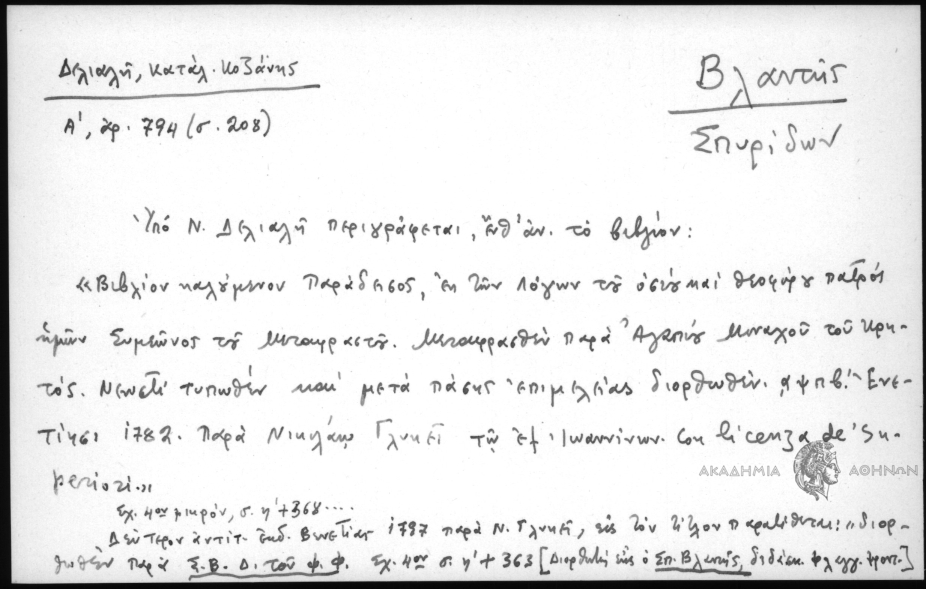 Δελιαλῆ, Κατάλ. Κοζάνης
Βλαντῆς
Α', ἀρ. 794 (σ. 208)
Σπυρίδων
Ὑπό Ν. Δελιαλῆ περιγράφεται, ἔνθ' ἀν. τό βιβλίον:
«Βιβλίον καλούμενον Παράδεισος, ἐκ τῶν Λόγων τοῦ ὁσίου καί θεοφόρου πατρός
ἡμῶν Συμεῶνος τοῦ Μεταφραστοῦ. Μεταφρασθέν παρά Ἀγαπίου Μοναχοῦ τοῦ Κρη-
τός. Νεωστί τυπωθέν καί μετά πάσης ἐπιμελείας διορθωθέν. ͵αψπβ'. Ἐνε-
τίησι 1782. Παρά Νικολάῳ Γλυκεῖ τῷ ἐξ Ἰωαννίνων. Con licenza de' Su-
periori.»
Σχ. 4ον μικρόν, σ. η'+368 ....
Δεύτερον ἀντίτ. ἐκδ. Βενετίας 1797 παρά Ν. Γλυκεῖ, εἰς τόν τίτλον παρατίθεται: "διορ-
θωθέν παρά Σ. Β. Δ. τοῦ Φ. Φ. Σχ. 4ον σ. η' + 363 [Διορθωτής εἶς ὁ Σπ. Βλαντῆς, διδάσκ. Φλαγγ. Φροντ.]
ΑΚΑΔΗΜΙΑ ΑΘΗΝΩΝ